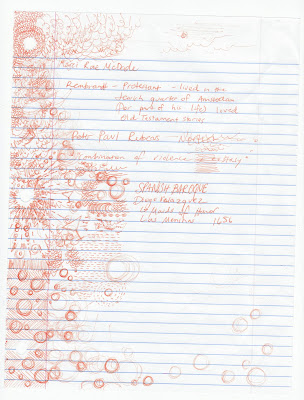 Rae
Rembrandt - Protestant - lived in the
Jewish quarter of Amsterdam
for part of his life, loved
Old Testament stories
Peter Paul Rubens
"combination of violence
SPANISH BAROQUE
Diego Velazquez
Maids of Honor
Las Meninas 1656